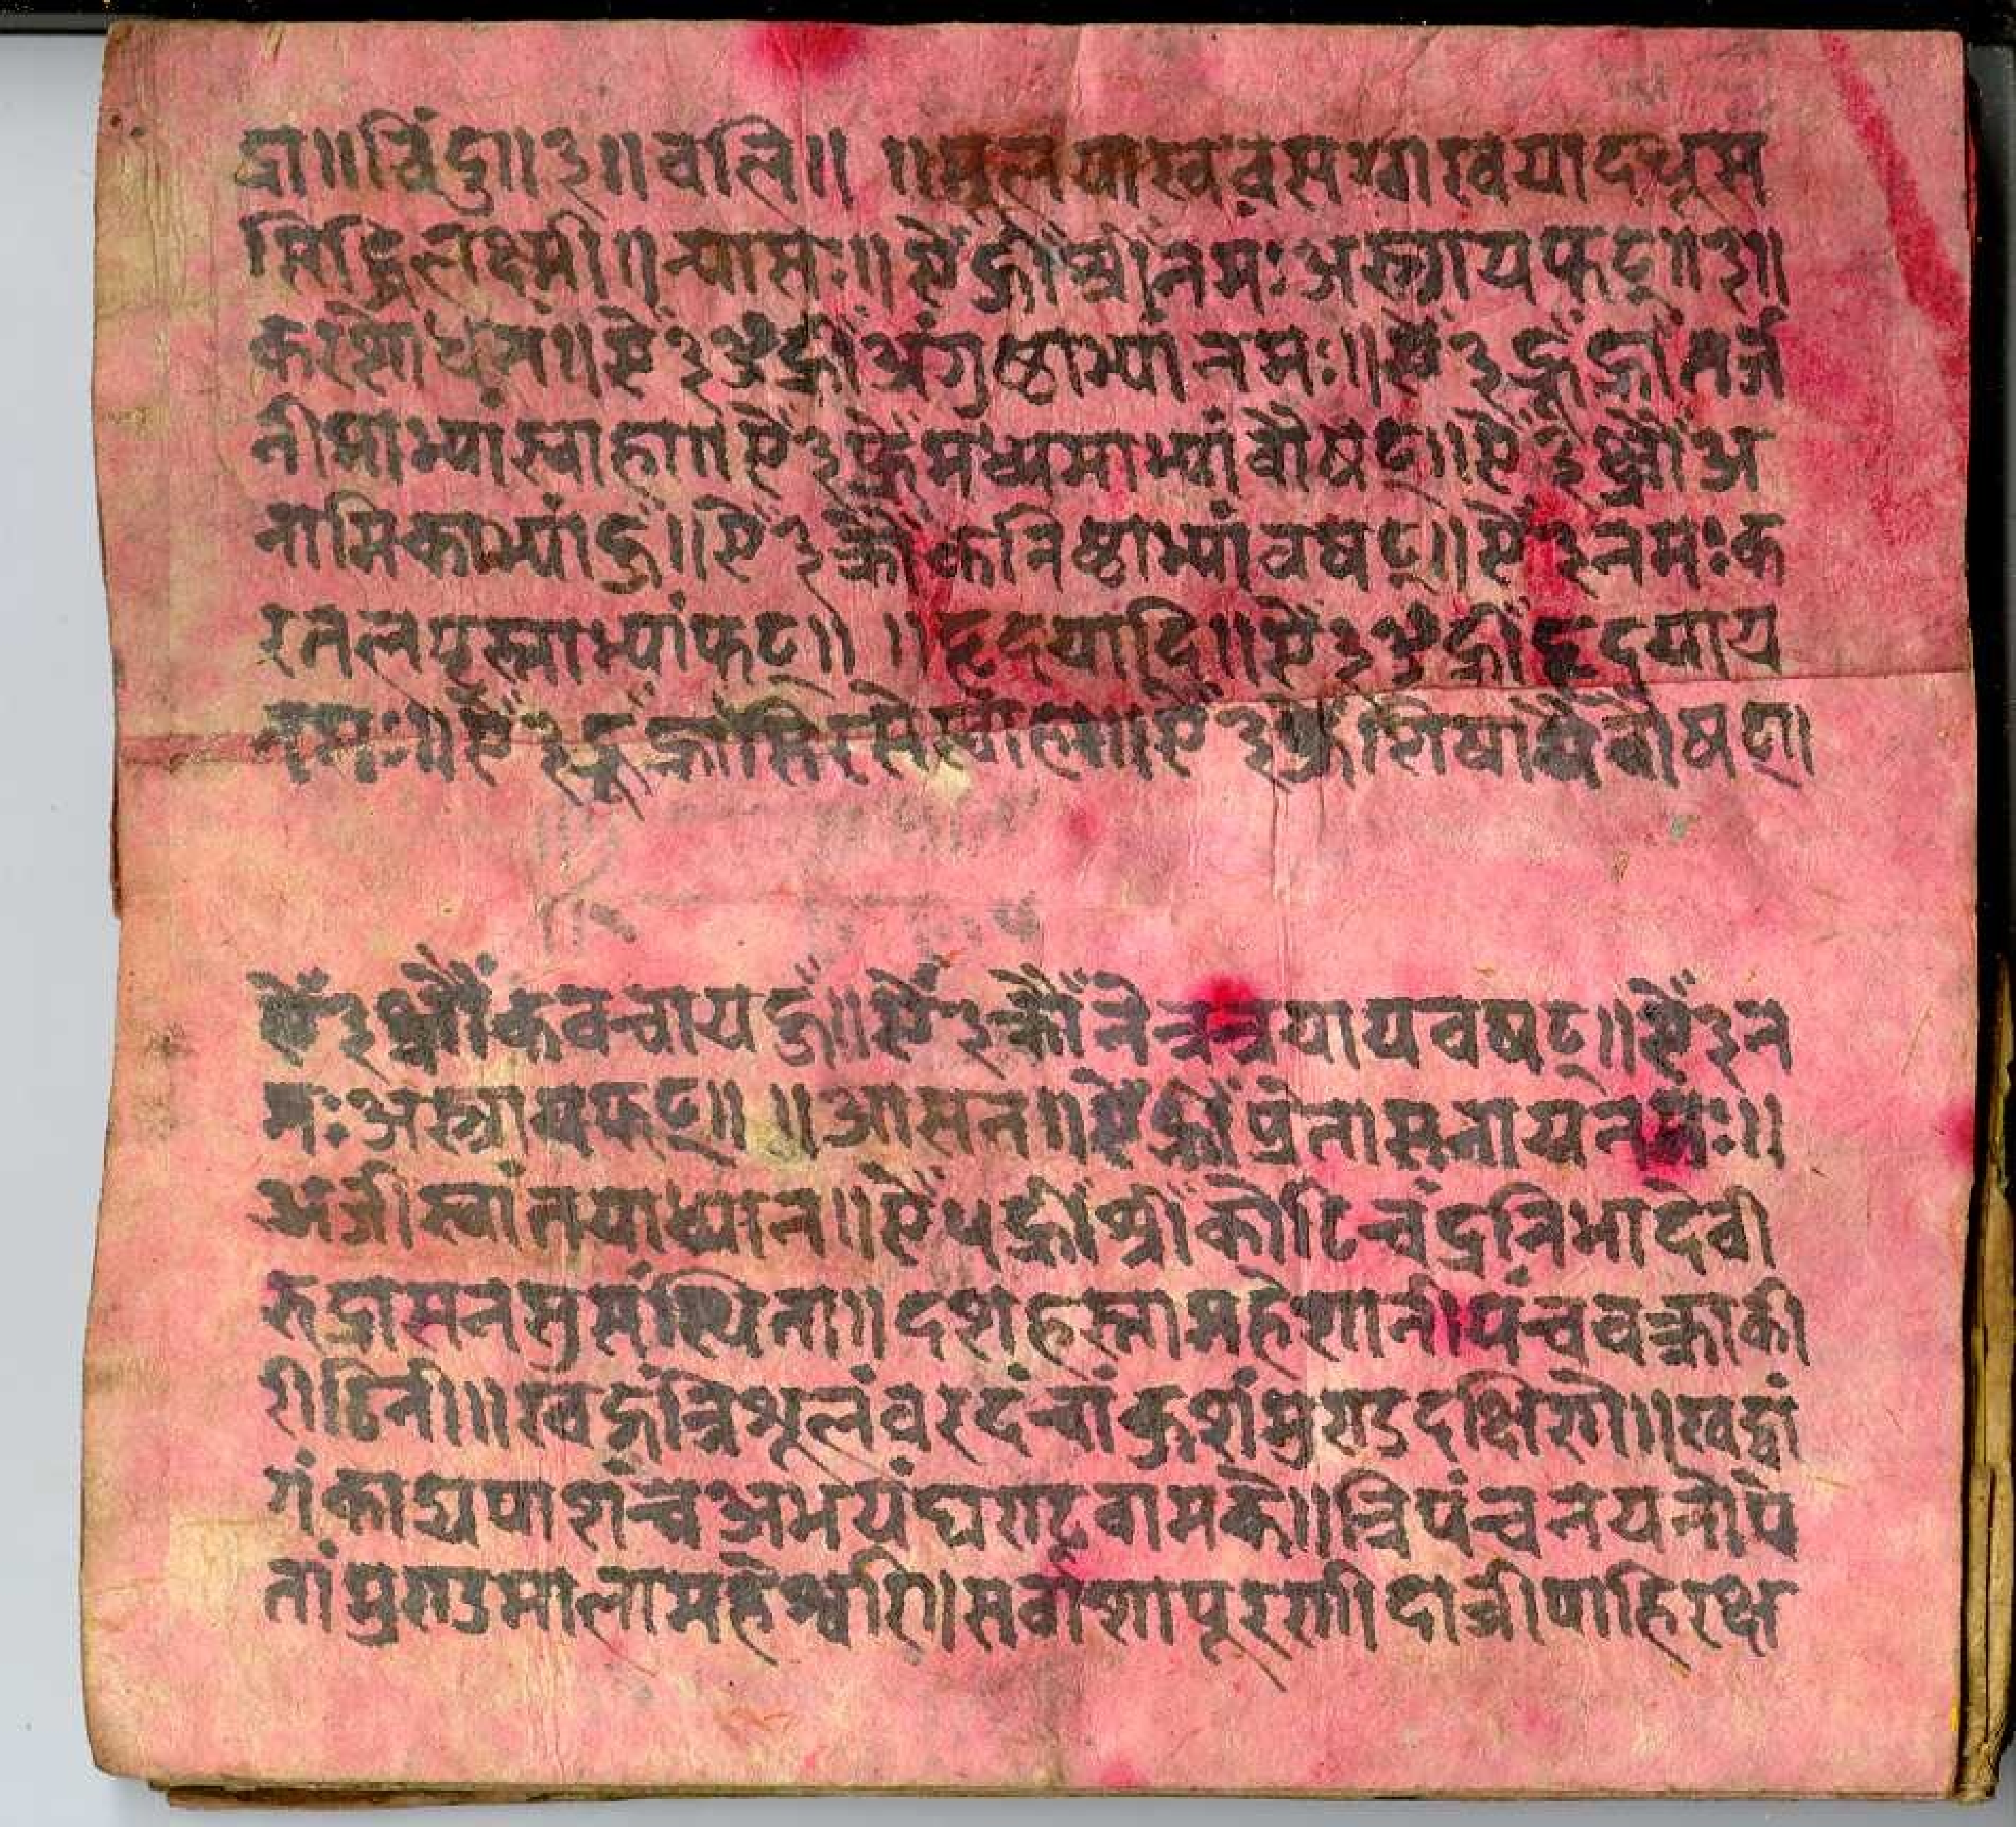 द्रा॥ विंदु॥३॥ वलि॥ ॥ मूलयाखवस याखयादथूस
सिद्धिलक्ष्मी॥ न्यासः॥ ऐँ ह्रीँ श्रीँ नमः अस्त्राय फट्॥३॥
करशोधनं॥ ऐँ ३ ॐ ह्रीँ अंगुष्ठाभ्यां नमः॥ ऐँ ३ तर्ज
नीभ्राभ्यां स्वाहा॥ ऐँ ३ मध्यमाभ्यां वौषट्॥ ऐँ ३ अ
नामिकाभ्यां हुं॥ ऐँ ३ क्रोँ कनिष्ठाभ्यां वषट्॥ ऐँ ३ नमः क
रतलपृस्त्राभ्यां फट्॥ ॥ हृदयादि॥ ऐँ ३ ॐ ह्रीँ हृदयाय
नमः॥ ऐँ ३ सिरसे स्वाहा॥ ऐँ ३ शिषायै वौषट्॥
ऐँ ३ कवचाय हुं॥ ऐँ ३ क्रोँ नेत्रत्रयाय वषट्॥ ऐँ ३ न
मः अस्त्राय फट्॥ ॥ आसन॥ ऐँ प्रेतासनाय नमः॥
ध्यान॥ ऐँ ५ ह्रीँ श्रीँ कोटिचंद्रनिभादेवी
रुद्रासनसुसंस्थिता॥ दशहस्तामहेशानी पंचवक्त्राकी
रीटिनी॥ खड्गंत्रिशूलंवरदं चांकुशंमुण्डदक्षिणे॥ खट्वां
गंकाद्यपाशंच अभयंघण्टवामके॥ त्रिपंचनयनोपे
तां मुण्डमालामहेश्वरि॥ सर्वाशापूरणी दात्री पाहि रक्ष